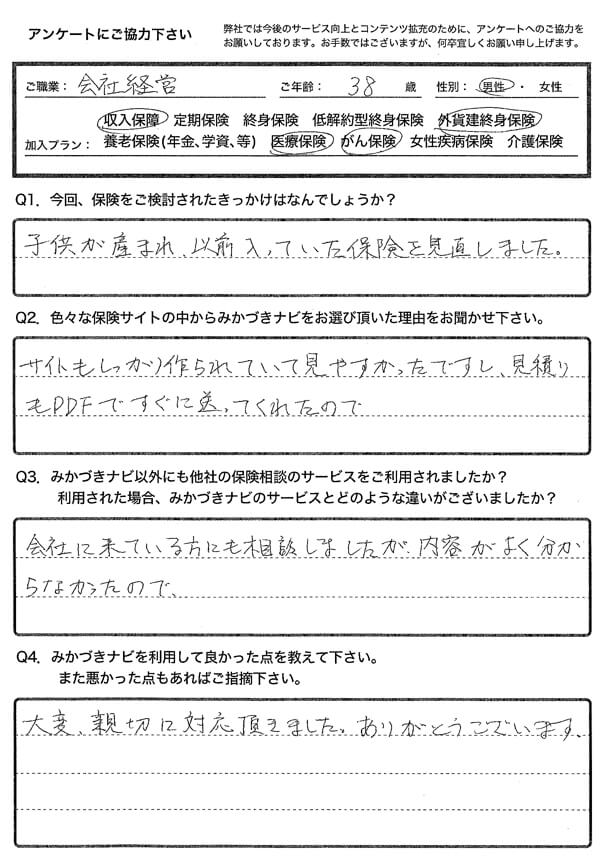 アンケートにご協力下さい
弊社では今後のサービス向上とコンテンツ拡充のために、アンケートへのご協力を
お願いしております。お手数ではございますが、何卒宜しくお願い申し上げます。
ご職業: 会社経営 ご年齢: 38 歳 性別: 男性 ・ 女性
収入保障 定期保険 終身保険 低解約型終身保険 外貨建終身保険
加入プラン: 養老保険(年金、学資、等) 医療保険 がん保険 女性疾病保険 介護保険
Q1. 今回、保険をご検討されたきっかけはなんでしょうか?
子供が産まれ、以前入っていた保険を見直しました。
Q2. 色々な保険サイトの中からみかづきナビをお選び頂いた理由をお聞かせ下さい。
サイトもしっかり作られていて見やすかったですし、見積り
もPDFですぐに送ってくれたので
Q3. みかづきナビ以外にも他社の保険相談のサービスをご利用されましたか?
利用された場合、みかづきナビのサービスとどのような違いがございましたか?
会社に来ている方にも相談しましたが、内容がよく分か
らなかったので、
Q4. みかづきナビを利用して良かった点を教えて下さい。
また悪かった点もあればご指摘下さい。
大変、親切に対応頂きました。ありがとうございます、